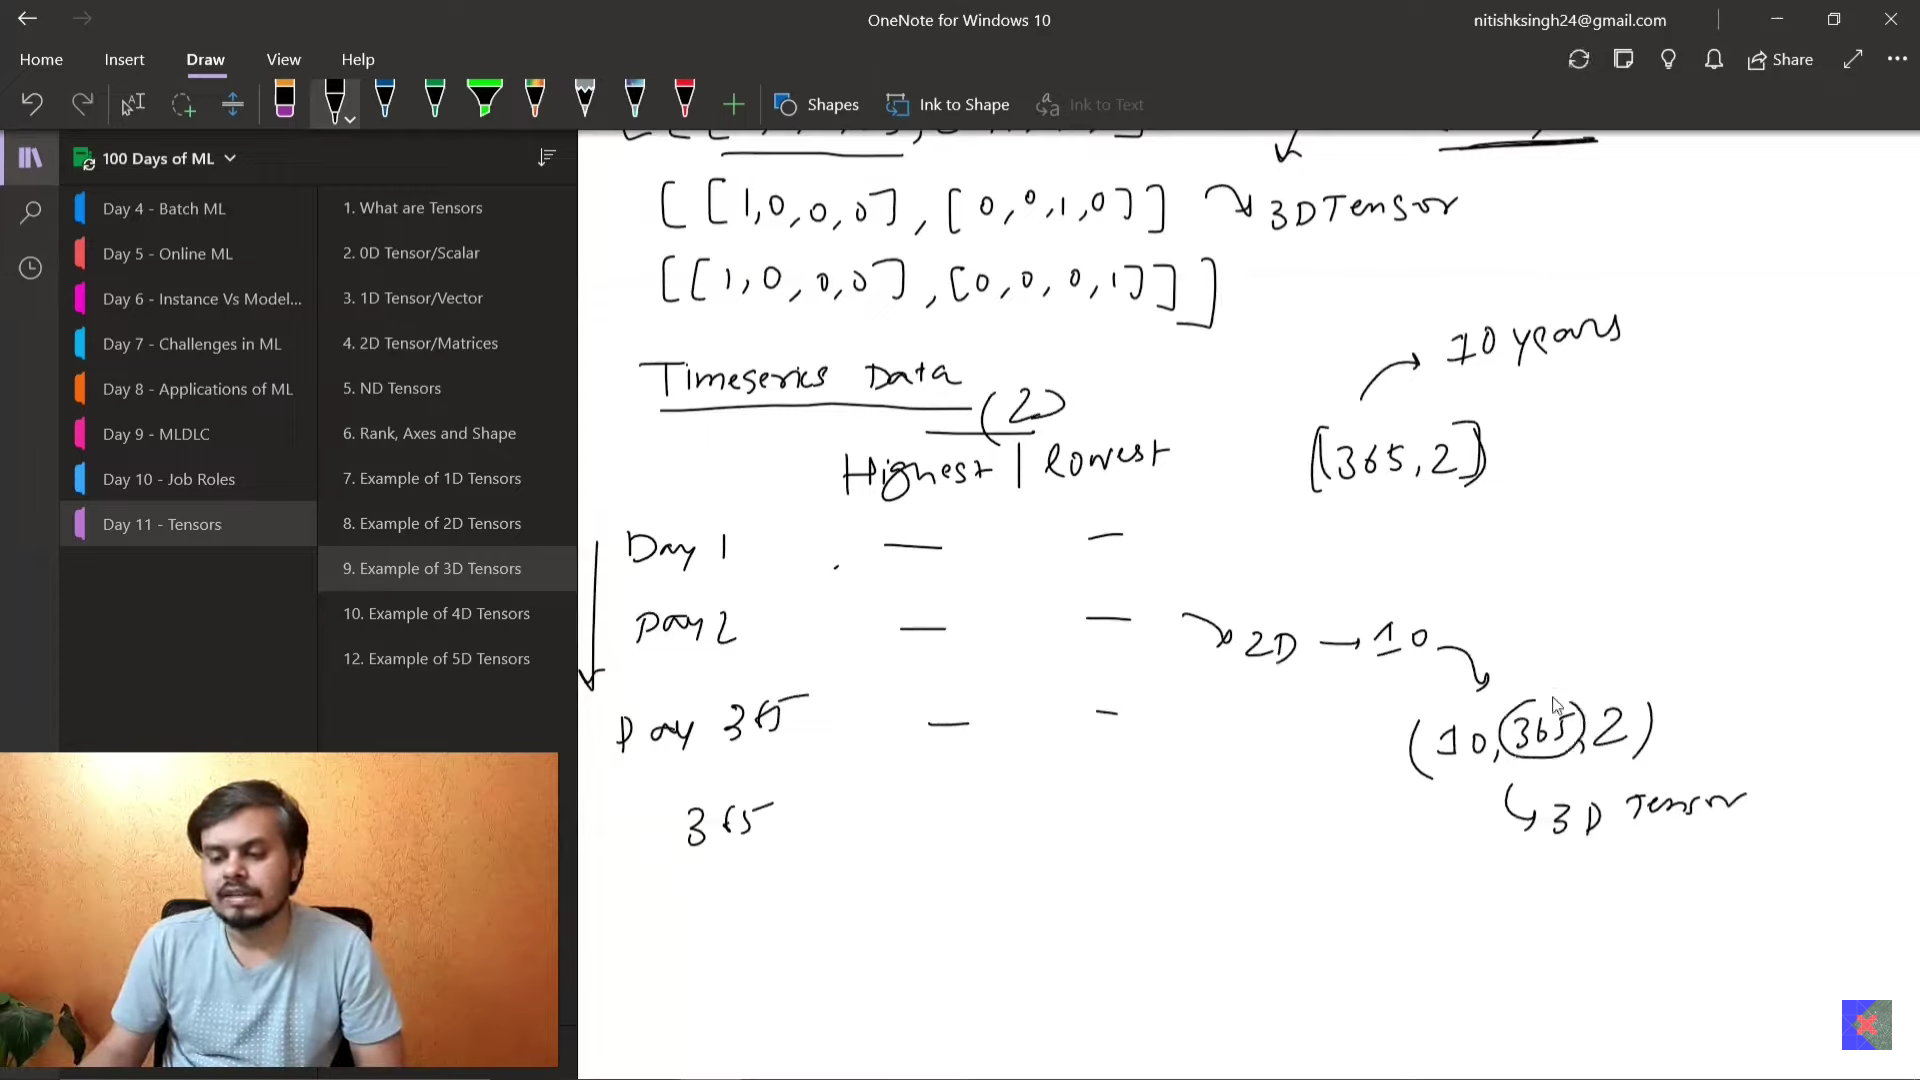 OneNote for Windows 10
nitishksingh24@gmail.com
Home Insert Draw View Help
Share
Shapes Ink to Shape Ink to Text
100 Days of ML
Day 4 - Batch ML
Day 5 - Online ML
Day 6 - Instance Vs Model...
Day 7 - Challenges in ML
Day 8 - Applications of ML
Day 9 - MLDLC
Day 10 - Job Roles
Day 11 - Tensors
1. What are Tensors
2. 0D Tensor/Scalar
3. 1D Tensor/Vector
4. 2D Tensor/Matrices
5. ND Tensors
6. Rank, Axes and Shape
7. Example of 1D Tensors
8. Example of 2D Tensors
9. Example of 3D Tensors
10. Example of 4D Tensors
12. Example of 5D Tensors
[[1,0,0,0],[0,0,1,0]] 3D Tensor
[[1,0,0,0],[0,0,0,1]]]
10 years
Timeseries Data
(2)
Highest | lowest
[365,2]
Day 1 — —
Day 2 — — 2D → 10
Day 365 — —
(10,365,2)
3D Tensor
365